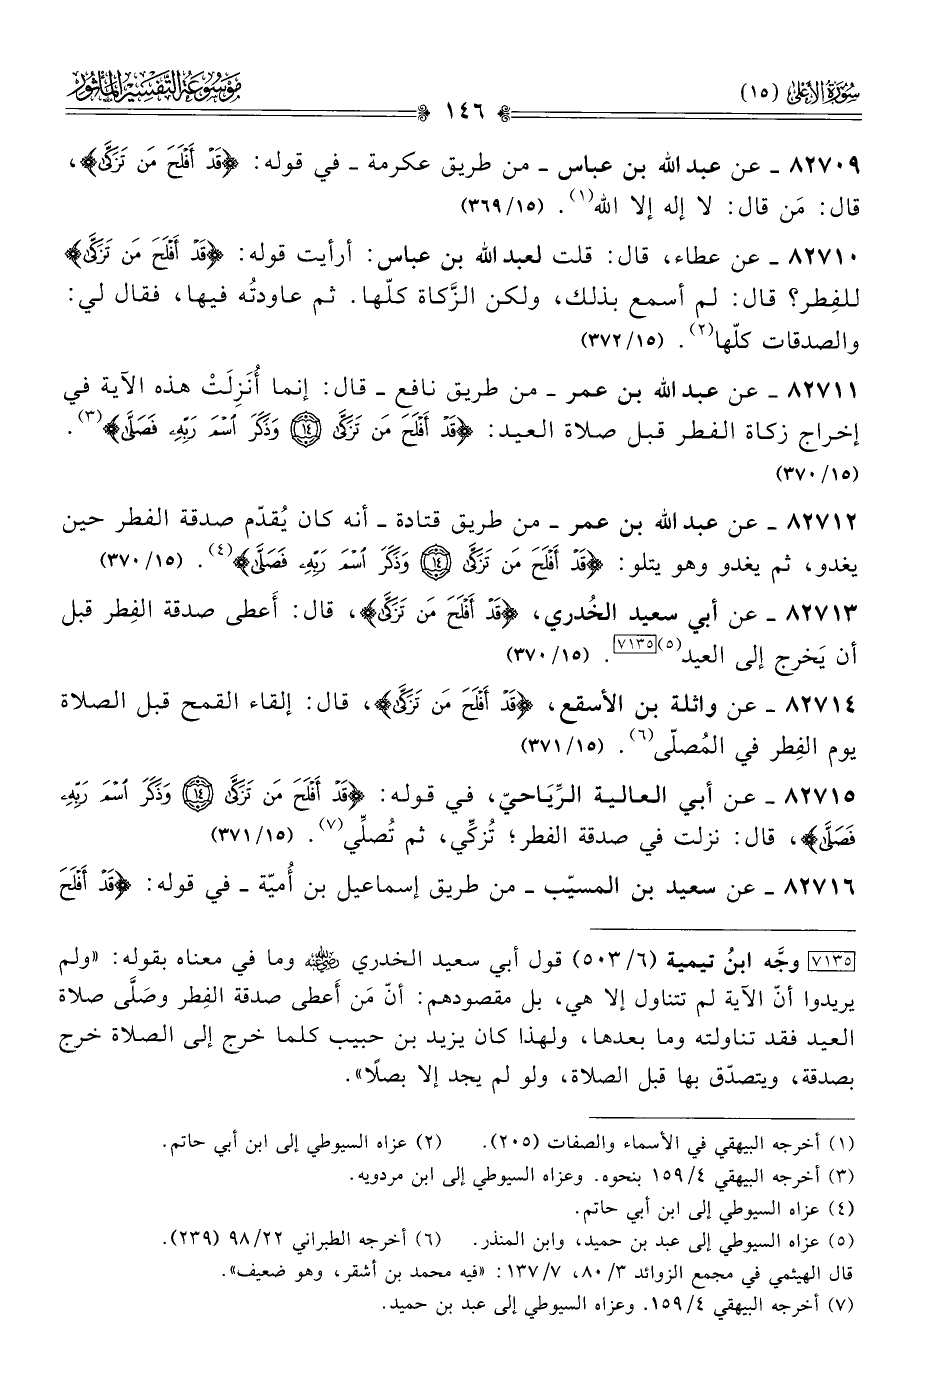 سورة الأعلى (١٥)
١٤٦
موسوعة التفسير المأثور
٨٢٧٠٩ ـ عن عبد الله بن عباس ـ من طريق عكرمة ـ في قوله: ﴿قَدْ أَفْلَحَ مَن تَزَكَّىٰ﴾،
قال: مَن قال: لا إله إلا الله(١). (١٥/٣٦٩)
٨٢٧١٠ ـ عن عطاء، قال: قلت لعبد الله بن عباس: أرأيت قوله: ﴿قَدْ أَفْلَحَ مَن تَزَكَّىٰ﴾
للفِطر؟ قال: لم أسمع بذلك، ولكن الزَّكاة كلّها. ثم عاودتُه فيها، فقال لي:
والصدقات كلّها(٢). (١٥/٣٧٢)
٨٢٧١١ ـ عن عبد الله بن عمر ـ من طريق نافع ـ قال: إنما أُنزِلَتْ هذه الآية في
إخراج زكاة الفطر قبل صلاة العيد: ﴿قَدْ أَفْلَحَ مَن تَزَكَّىٰ ١٤ وَذَكَرَ ٱسْمَ رَبِّهِۦ فَصَلَّىٰ﴾(٣).
(١٥/٣٧٠)
٨٢٧١٢ ـ عن عبد الله بن عمر ـ من طريق قتادة ـ أنه كان يُقدّم صدقة الفطر حين
يغدو، ثم يغدو وهو يتلو: ﴿قَدْ أَفْلَحَ مَن تَزَكَّىٰ ١٤ وَذَكَرَ ٱسْمَ رَبِّهِۦ فَصَلَّىٰ﴾(٤). (١٥/٣٧٠)
٨٢٧١٣ ـ عن أبي سعيد الخُدري، ﴿قَدْ أَفْلَحَ مَن تَزَكَّىٰ﴾، قال: أَعطى صدقة الفِطر قبل
أن يَخرج إلى العيد(٥)[٧١٣٥]. (١٥/٣٧٠)
٨٢٧١٤ ـ عن واثلة بن الأسقع، ﴿قَدْ أَفْلَحَ مَن تَزَكَّىٰ﴾، قال: إلقاء القمح قبل الصلاة
يوم الفِطر في المُصلّى(٦). (١٥/٣٧١)
٨٢٧١٥ ـ عن أبي العالية الرِّياحيّ، في قوله: ﴿قَدْ أَفْلَحَ مَن تَزَكَّىٰ ١٤ وَذَكَرَ ٱسْمَ رَبِّهِۦ
فَصَلَّىٰ﴾، قال: نزلت في صدقة الفطر؛ تُزكِّي، ثم تُصلِّي(٧). (١٥/٣٧١)
٨٢٧١٦ ـ عن سعيد بن المسيّب ـ من طريق إسماعيل بن أُميّة ـ في قوله: ﴿قَدْ أَفْلَحَ
[٧١٣٥] وجَّه ابنُ تيمية (٦/٥٠٣) قول أبي سعيد الخدري رضي الله عنه وما في معناه بقوله: «ولم
يريدوا أنّ الآية لم تتناول إلا هي، بل مقصودهم: أنّ مَن أَعطى صدقة الفِطر وصَلَّى صلاة
العيد فقد تناولته وما بعدها، ولهذا كان يزيد بن حبيب كلما خرج إلى الصلاة خرج
بصدقة، ويتصدّق بها قبل الصلاة، ولو لم يجد إلا بصلًا».
(١) أخرجه البيهقي في الأسماء والصفات (٢٠٥). (٢) عزاه السيوطي إلى ابن أبي حاتم.
(٣) أخرجه البيهقي ٤/١٥٩ بنحوه. وعزاه السيوطي إلى ابن مردويه.
(٤) عزاه السيوطي إلى ابن أبي حاتم.
(٥) عزاه السيوطي إلى عبد بن حميد، وابن المنذر. (٦) أخرجه الطبراني ٢٢/٩٨ (٢٣٩).
قال الهيثمي في مجمع الزوائد ٣/٨٠، ٧/١٣٧: «فيه محمد بن أشقر، وهو ضعيف».
(٧) أخرجه البيهقي ٤/١٥٩. وعزاه السيوطي إلى عبد بن حميد.